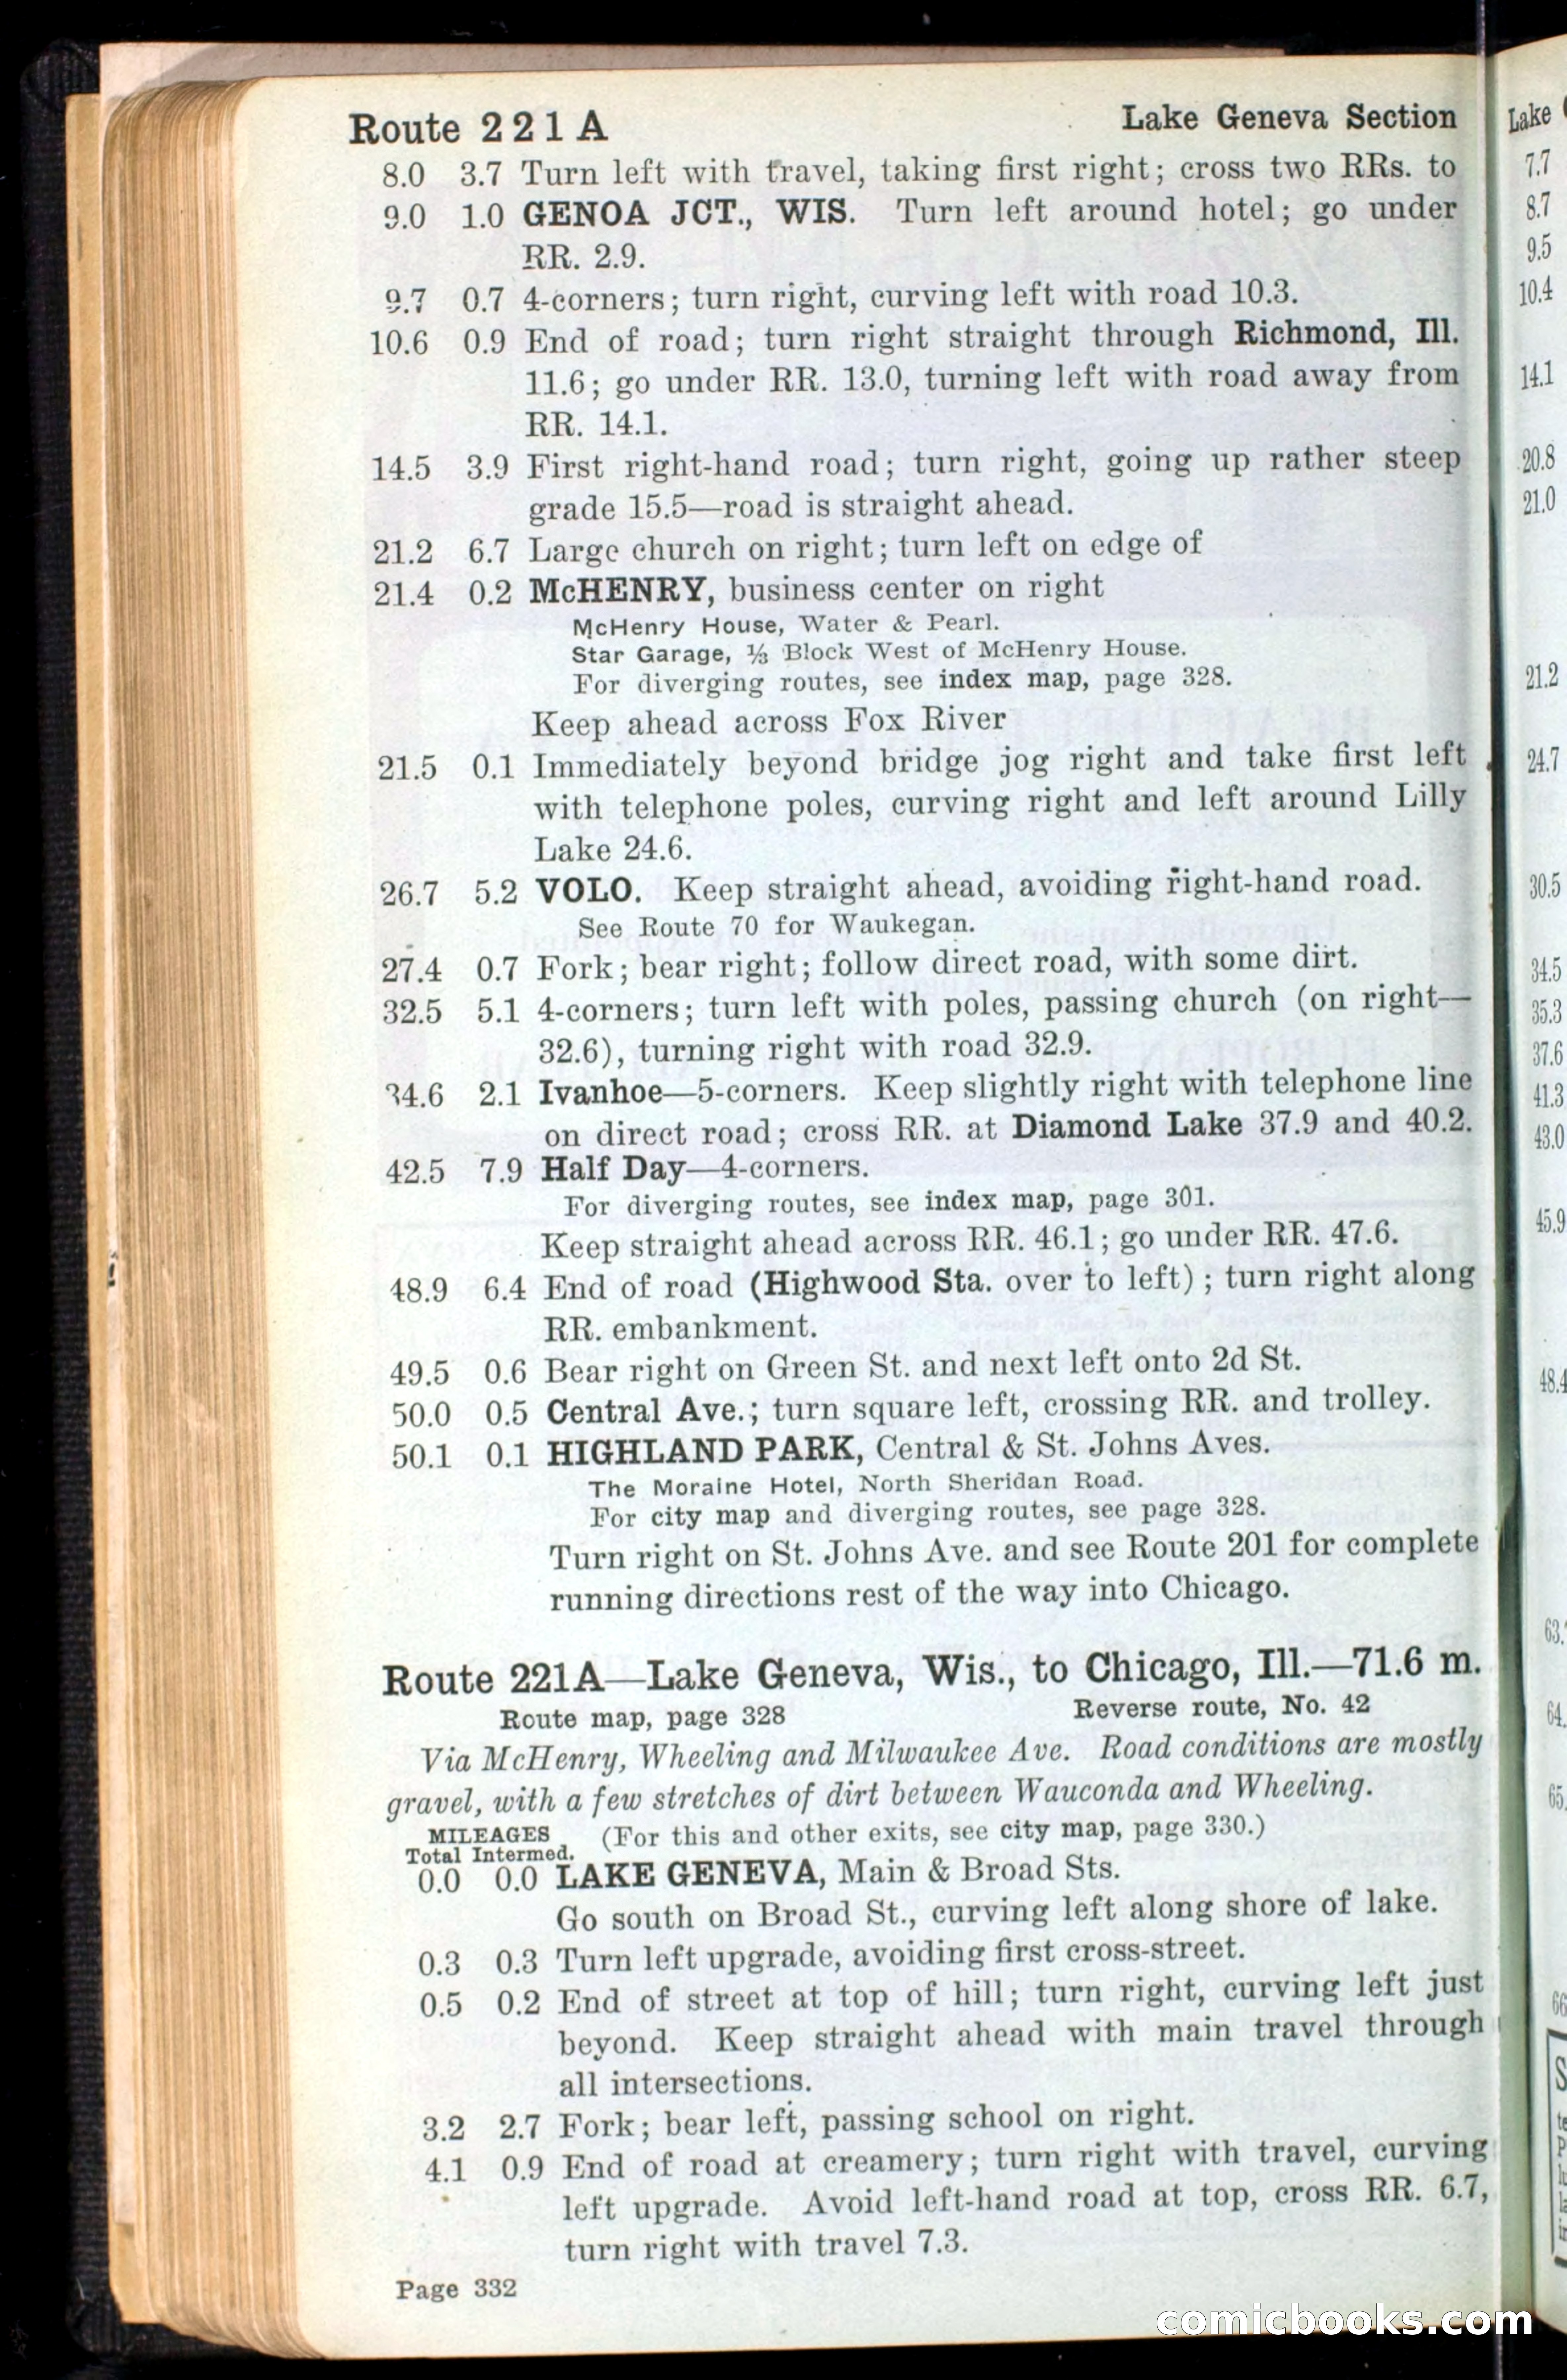 Route 221A Lake Geneva Section
8.0 3.7 Turn left with travel, taking first right; cross two RRs. to
9.0 1.0 GENOA JCT., WIS. Turn left around hotel; go under
RR. 2.9.
9.7 0.7 4-corners; turn right, curving left with road 10.3.
10.6 0.9 End of road; turn right straight through Richmond, Ill.
11.6; go under RR. 13.0, turning left with road away from
RR. 14.1.
14.5 3.9 First right-hand road; turn right, going up rather steep
grade 15.5—road is straight ahead.
21.2 6.7 Large church on right; turn left on edge of
21.4 0.2 McHENRY, business center on right
McHenry House, Water & Pearl.
Star Garage, ⅓ Block West of McHenry House.
For diverging routes, see index map, page 328.
Keep ahead across Fox River
21.5 0.1 Immediately beyond bridge jog right and take first left
with telephone poles, curving right and left around Lilly
Lake 24.6.
26.7 5.2 VOLO. Keep straight ahead, avoiding right-hand road.
See Route 70 for Waukegan.
27.4 0.7 Fork; bear right; follow direct road, with some dirt.
32.5 5.1 4-corners; turn left with poles, passing church (on right—
32.6), turning right with road 32.9.
34.6 2.1 Ivanhoe—5-corners. Keep slightly right with telephone line
on direct road; cross RR. at Diamond Lake 37.9 and 40.2.
42.5 7.9 Half Day—4-corners.
For diverging routes, see index map, page 301.
Keep straight ahead across RR. 46.1; go under RR. 47.6.
48.9 6.4 End of road (Highwood Sta. over to left); turn right along
RR. embankment.
49.5 0.6 Bear right on Green St. and next left onto 2d St.
50.0 0.5 Central Ave.; turn square left, crossing RR. and trolley.
50.1 0.1 HIGHLAND PARK, Central & St. Johns Aves.
The Moraine Hotel, North Sheridan Road.
For city map and diverging routes, see page 328.
Turn right on St. Johns Ave. and see Route 201 for complete
running directions rest of the way into Chicago.
Route 221A—Lake Geneva, Wis., to Chicago, Ill.—71.6 m.
Route map, page 328 Reverse route, No. 42
Via McHenry, Wheeling and Milwaukee Ave. Road conditions are mostly
gravel, with a few stretches of dirt between Wauconda and Wheeling.
MILEAGES (For this and other exits, see city map, page 330.)
Total Intermed.
0.0 0.0 LAKE GENEVA, Main & Broad Sts.
Go south on Broad St., curving left along shore of lake.
0.3 0.3 Turn left upgrade, avoiding first cross-street.
0.5 0.2 End of street at top of hill; turn right, curving left just
beyond. Keep straight ahead with main travel through
all intersections.
3.2 2.7 Fork; bear left, passing school on right.
4.1 0.9 End of road at creamery; turn right with travel, curving
left upgrade. Avoid left-hand road at top, cross RR. 6.7,
turn right with travel 7.3.
Page 332
Lake
7.7
8.7
9.5
10.4
14.1
20.8
21.0
21.2
24.7
30.5
34.5
35.3
37.6
41.3
43.0
45.9
48.4
comicbooks.com